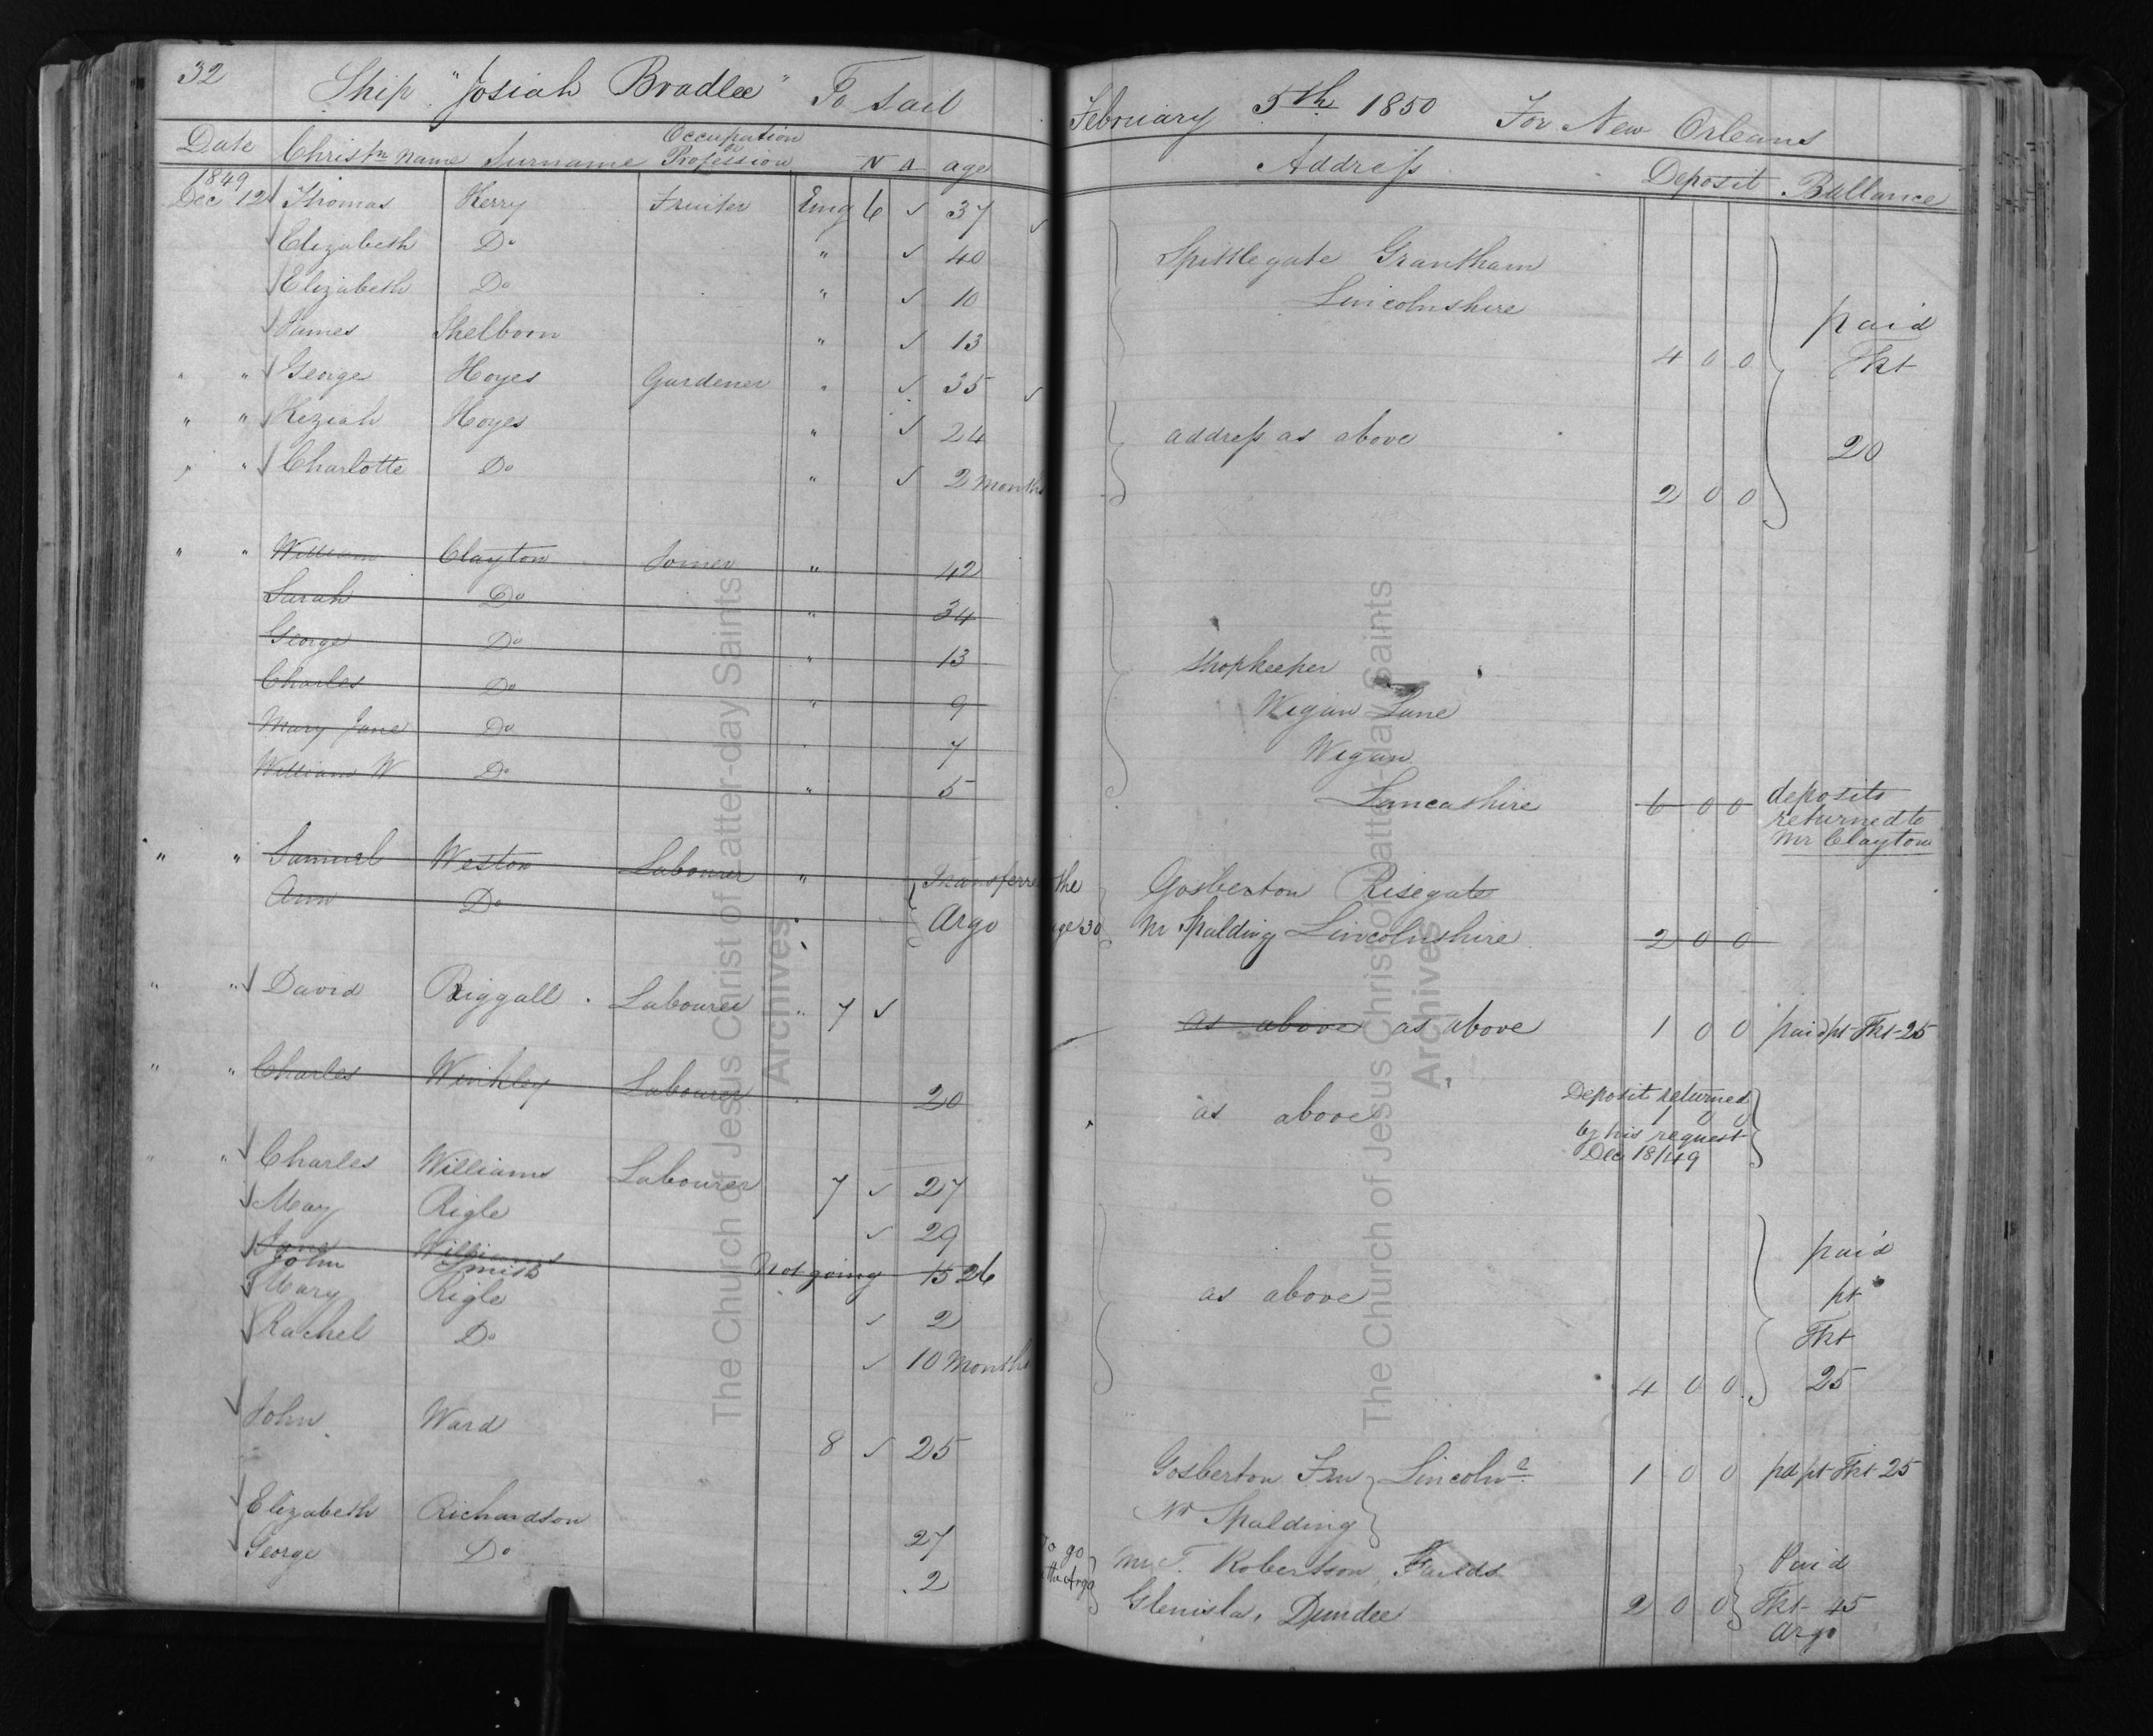 32 Ship "Josiah Bradlee" To Sail February 5th 1850 For New Orleans
Date Christn Name Surname Occupation or Profession N A age Address Deposit Ballance
1849
Dec 12 Thomas Kerry Fruiter Eng 6 ✓ 37 ✓
Elizabeth Do " ✓ 40 Spittlegate Grantham
Elizabeth Do " ✓ 10 Lincolnshire
James Shelborn " ✓ 13 4 0 0 paid Tkt
" " George Hoyes Gardener " ✓ 35 ✓
" " Keziah Hoyes " ✓ 24 address as above 20
" " Charlotte Do " ✓ 2 Months 2 0 0
" " William Clayton Joiner " 42
Sarah Do " 34
George Do " 13 Shopkeeper
Charles Do " 9 Wigan Lane
Mary Jane Do " 7 Wigan
William W Do " 5 Lancashire 6 0 0 deposits
returned to
Mr Clayton
" " Samuel Weston Labourer " Transferre the Gosberton Risegate
Ann Do " Argo age 30 Nr Spalding Lincolnshire 2 0 0
" " David Riggall Labourer " 7 ✓ as above as above 1 0 0 paid pt Tkt 25
" " Charles Winkley Labourer " 20 as above Deposit returned
1 0 0
by his request
Dec 18/49
" " Charles Williams Labourer 7 ✓ 27
May Rigle ✓ 29
Jane Williams
John Smith Not going 15 26 as above paid
Mary Rigle ✓ 2 pt
Rachel Do ✓ 10 Months Tkt
4 0 0 25
John Ward 8 ✓ 25 Gosberton Fen Lincolne 1 0 0 pd pt Tkt 25
Nr Spalding
Elizabeth Richardson 27 To go Mr T. Robertson, Faulds Paid
George Do 2 the Argo Glenisla, Dundee 2 0 0 Tkt 45
Argo
The Church of Jesus Christ of Latter-day Saints
Archives
The Church of Jesus Christ of Latter-day Saints
Archives